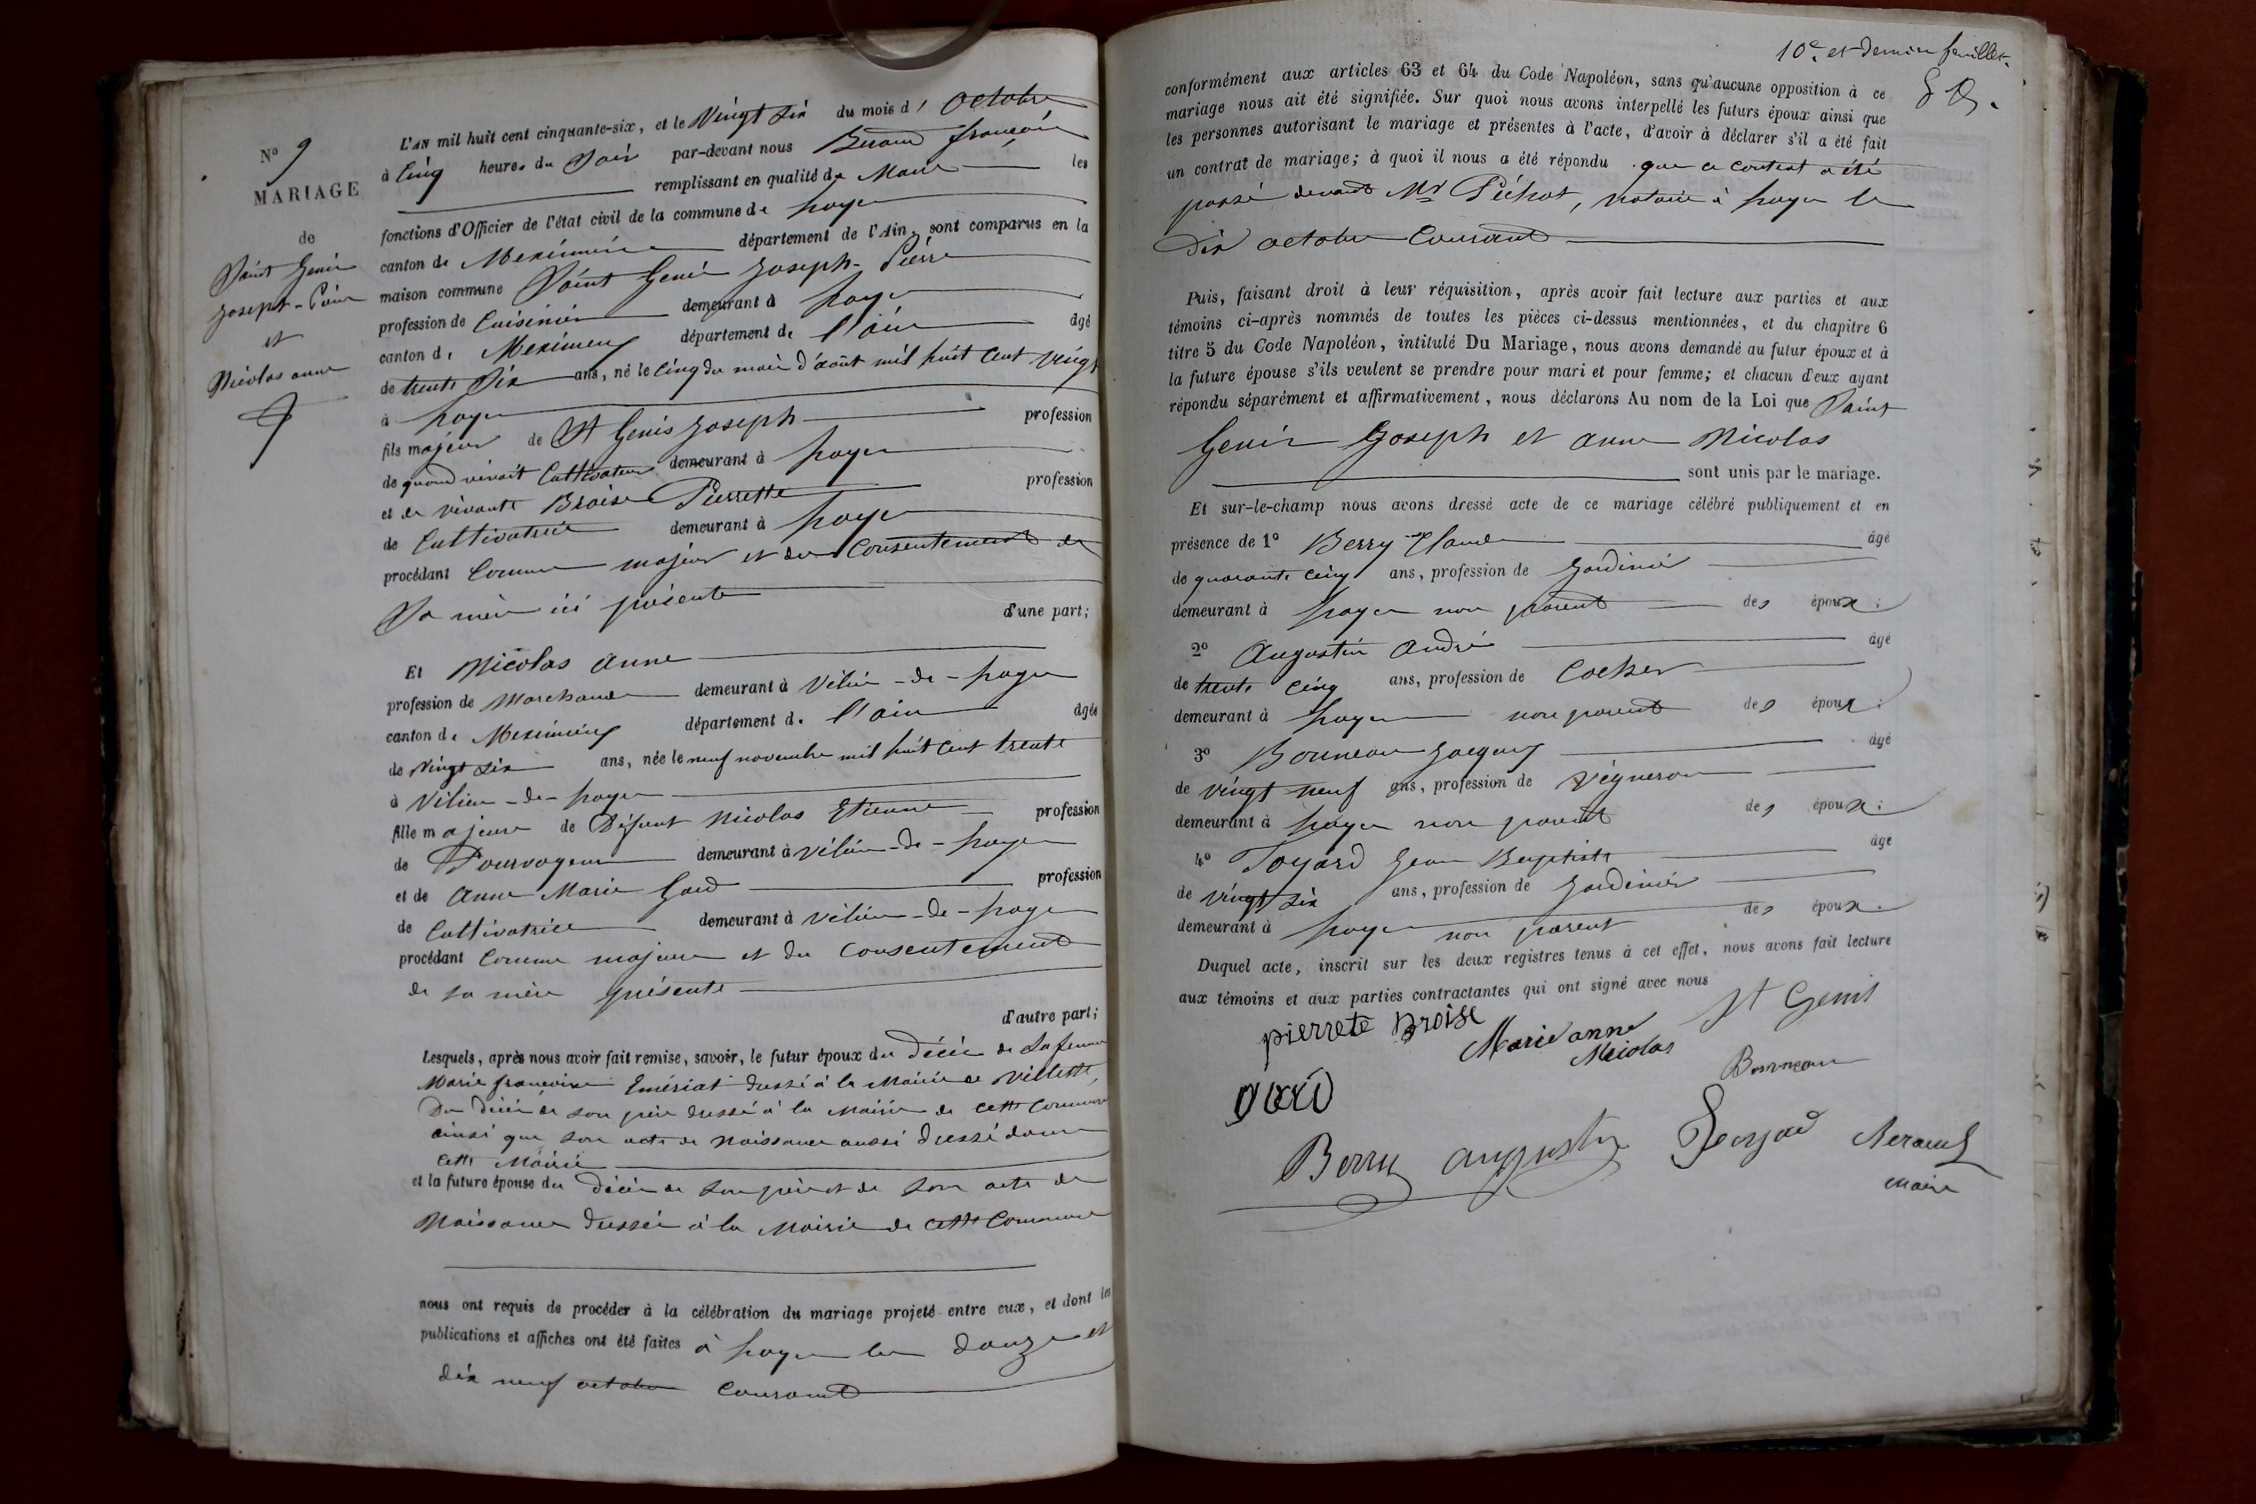 N° 9
MARIAGE
de
Saint Genis
Joseph-Pierre
et
Nicolas anne
L'AN mil huit cent cinquante-six, et le Vingt Six du mois d' Octobre
à Cinq heures du Soir par-devant nous Beraud françois
remplissant en qualité de Maire les
fonctions d'Officier de l'état civil de la commune de Loyes
canton de Meximieux département de l'Ain, sont comparus en la
maison commune Saint Genis Joseph-Pierre
profession de Cuisinier demeurant à Loyes
canton de Meximieux département de l'ain âgé
de trente Six ans, né le Cinq du mois d'août mil huit Cent vingt
à Loyes
fils majeur de St Genis Joseph profession
de quand vivait Cultivateur demeurant à Loyes
et de vivante Broise Pierrette profession
de Cultivatrice demeurant à Loyes
procédant Comme majeur et du Consentement de
Sa mère ici présente
d'une part;
Et Nicolas anne
profession de Marchande demeurant à Vilieu-de-Loyes
canton de Meximieux département de l'ain âgée
de Vingt Six ans, née le neuf novembre mil huit Cent trente
à Vilieu-de-Loyes
fille majeure de Défunt Nicolas Etienne profession
de Pourvoyeur demeurant à Vilieu-de-Loyes
et de Anne Marie Gard profession
de Cultivatrice demeurant à Vilieu-de-Loyes
procédant Comme majeure et du Consentement
de sa mère présente
d'autre part;
Lesquels, après nous avoir fait remise, savoir, le futur époux du décès de Sa femme
Marie françoise Emériat dressé à la Mairie de Villette,
Du décès de son père dressé à la Mairie de cette Commune
ainsi que son acte de Naissance aussi dressé dans
cette Mairie
et la future épouse du décès de son père et de son acte de
Naissance dressée à la Mairie de cette Commune
nous ont requis de procéder à la célébration du mariage projeté entre eux, et dont les
publications et affiches ont été faites à Loyes les douze et
dix neuf octobre Courant
10e et dernier feuillet.
conformément aux articles 63 et 64 du Code Napoléon, sans qu'aucune opposition à ce
mariage nous ait été signifiée. Sur quoi nous avons interpellé les futurs époux ainsi que
les personnes autorisant le mariage et présentes à l'acte, d'avoir à déclarer s'il a été fait
un contrat de mariage; à quoi il nous a été répondu que ce contrat a été
passé devant Me Péchot, notaire à Loyes le
dix octobre Courant
Puis, faisant droit à leur réquisition, après avoir fait lecture aux parties et aux
témoins ci-après nommés de toutes les pièces ci-dessus mentionnées, et du chapitre 6
titre 5 du Code Napoléon, intitulé Du Mariage, nous avons demandé au futur époux et à
la future épouse s'ils veulent se prendre pour mari et pour femme; et chacun d'eux ayant
répondu séparément et affirmativement, nous déclarons Au nom de la Loi que Saint
Genis Joseph et anne Nicolas
sont unis par le mariage.
Et sur-le-champ nous avons dressé acte de ce mariage célébré publiquement et en
présence de 1° Berry Claude âgé
de quarante cinq ans, profession de Jardinier
demeurant à Loyes non parent des époux;
2° Augustin André âgé
de trente cinq ans, profession de Cocher
demeurant à Loyes non parent des époux;
3° Bonneau Jacques âgé
de vingt neuf ans, profession de Vigneron
demeurant à Loyes non parent des époux;
4° Toyard Jean Baptiste âgé
de vingt six ans, profession de Jardinier
demeurant à Loyes non parent des époux.
Duquel acte, inscrit sur les deux registres tenus à cet effet, nous avons fait lecture
aux témoins et aux parties contractantes qui ont signé avec nous
St Genis
pierrete Broise
Marie anne
Nicolas
Bonneau
gard
Berry augustin Beraud
maire